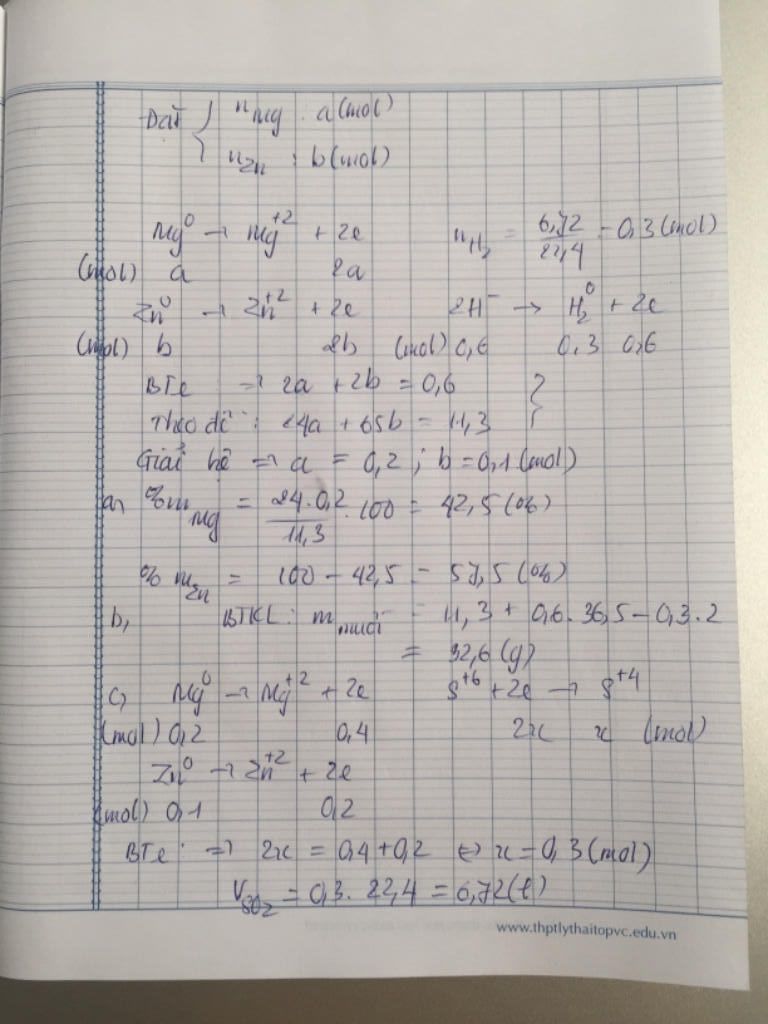 Đặt { nMg : a (mol)
nZn : b (mol)
Mg⁰ → Mg⁺² + 2e nH₂ = 6,72/22,4 = 0,3 (mol)
(mol) a 2a
Zn⁰ → Zn⁺² + 2e 2H⁻ → H₂⁰ + 2e
(mol) b 2b (mol) 0,6 0,3 0,6
BTe → 2a + 2b = 0,6 }
Theo đề : 24a + 65b = 11,3
Giải hệ ⇒ a = 0,2 ; b = 0,1 (mol)
a, %mMg = 24.0,2/11,3 .100 = 42,5 (%)
% mZn = 100 - 42,5 = 57,5 (%)
b, BTKL : m muối = 11,3 + 0,6.36,5 - 0,3.2
= 32,6 (g)
c, Mg⁰ → Mg⁺² + 2e S⁺⁶ + 2e → S⁺⁴
(mol) 0,2 0,4 2x x (mol)
Zn⁰ → Zn⁺² + 2e
(mol) 0,1 0,2
BTe : ⇒ 2x = 0,4 + 0,2 ⇔ x = 0,3 (mol)
VSO₂ = 0,3. 22,4 = 6,72 (l)
www.thptlythaitopvc.edu.vn